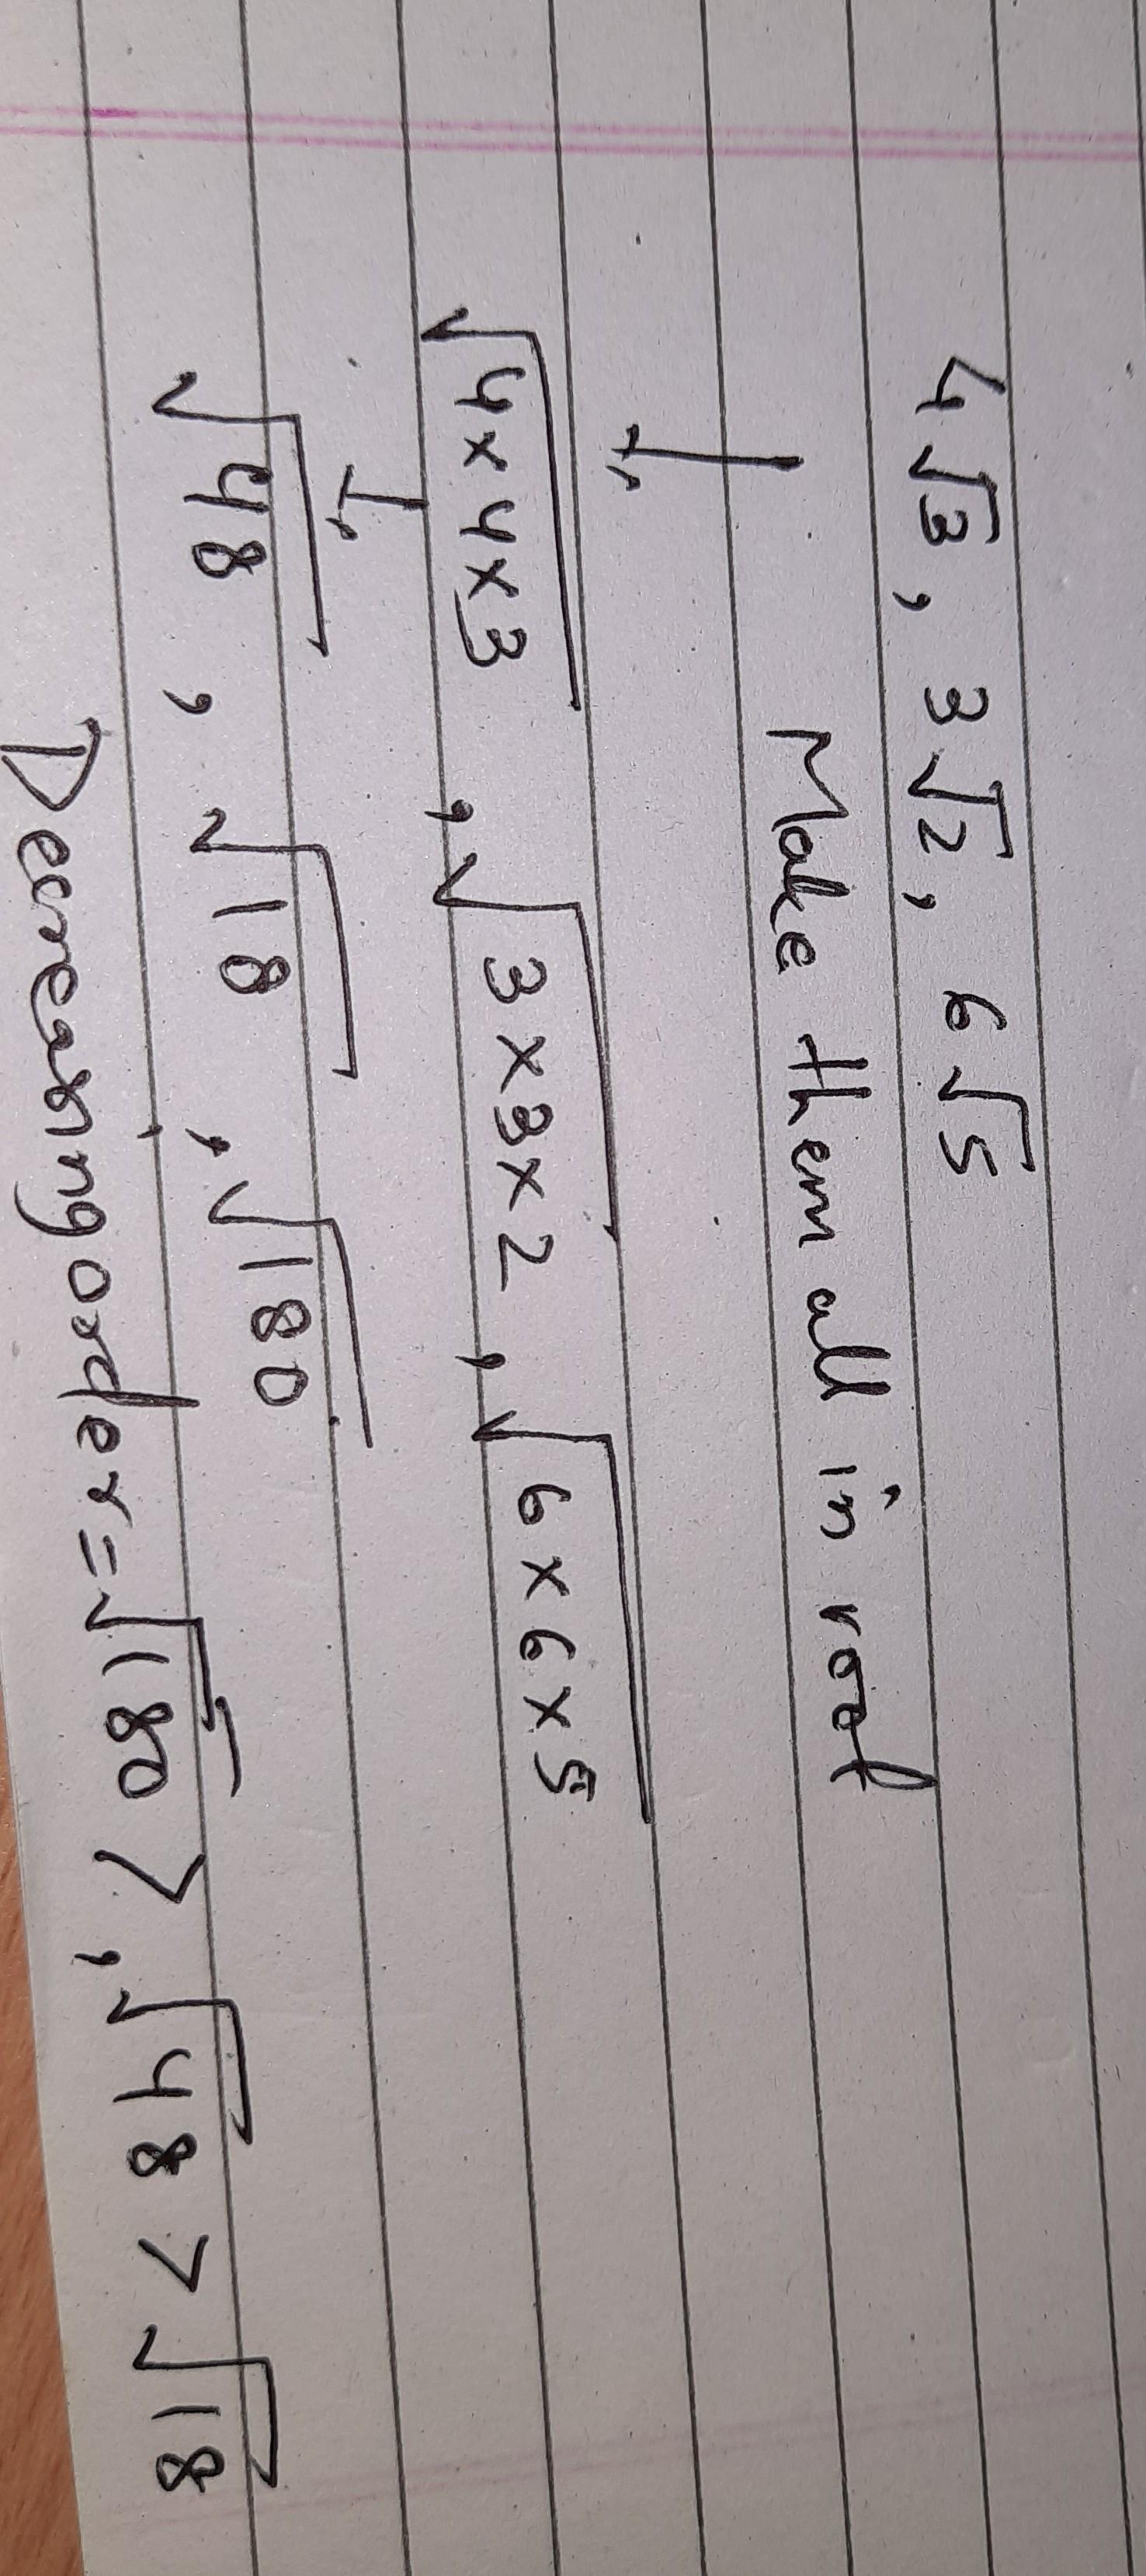 4√3, 3√2, 6√5
Make them all in root
√4×4×3, √3×3×2, √6×6×5
√48, √18, √180
Decreasing order = √180 >, √48 > √18